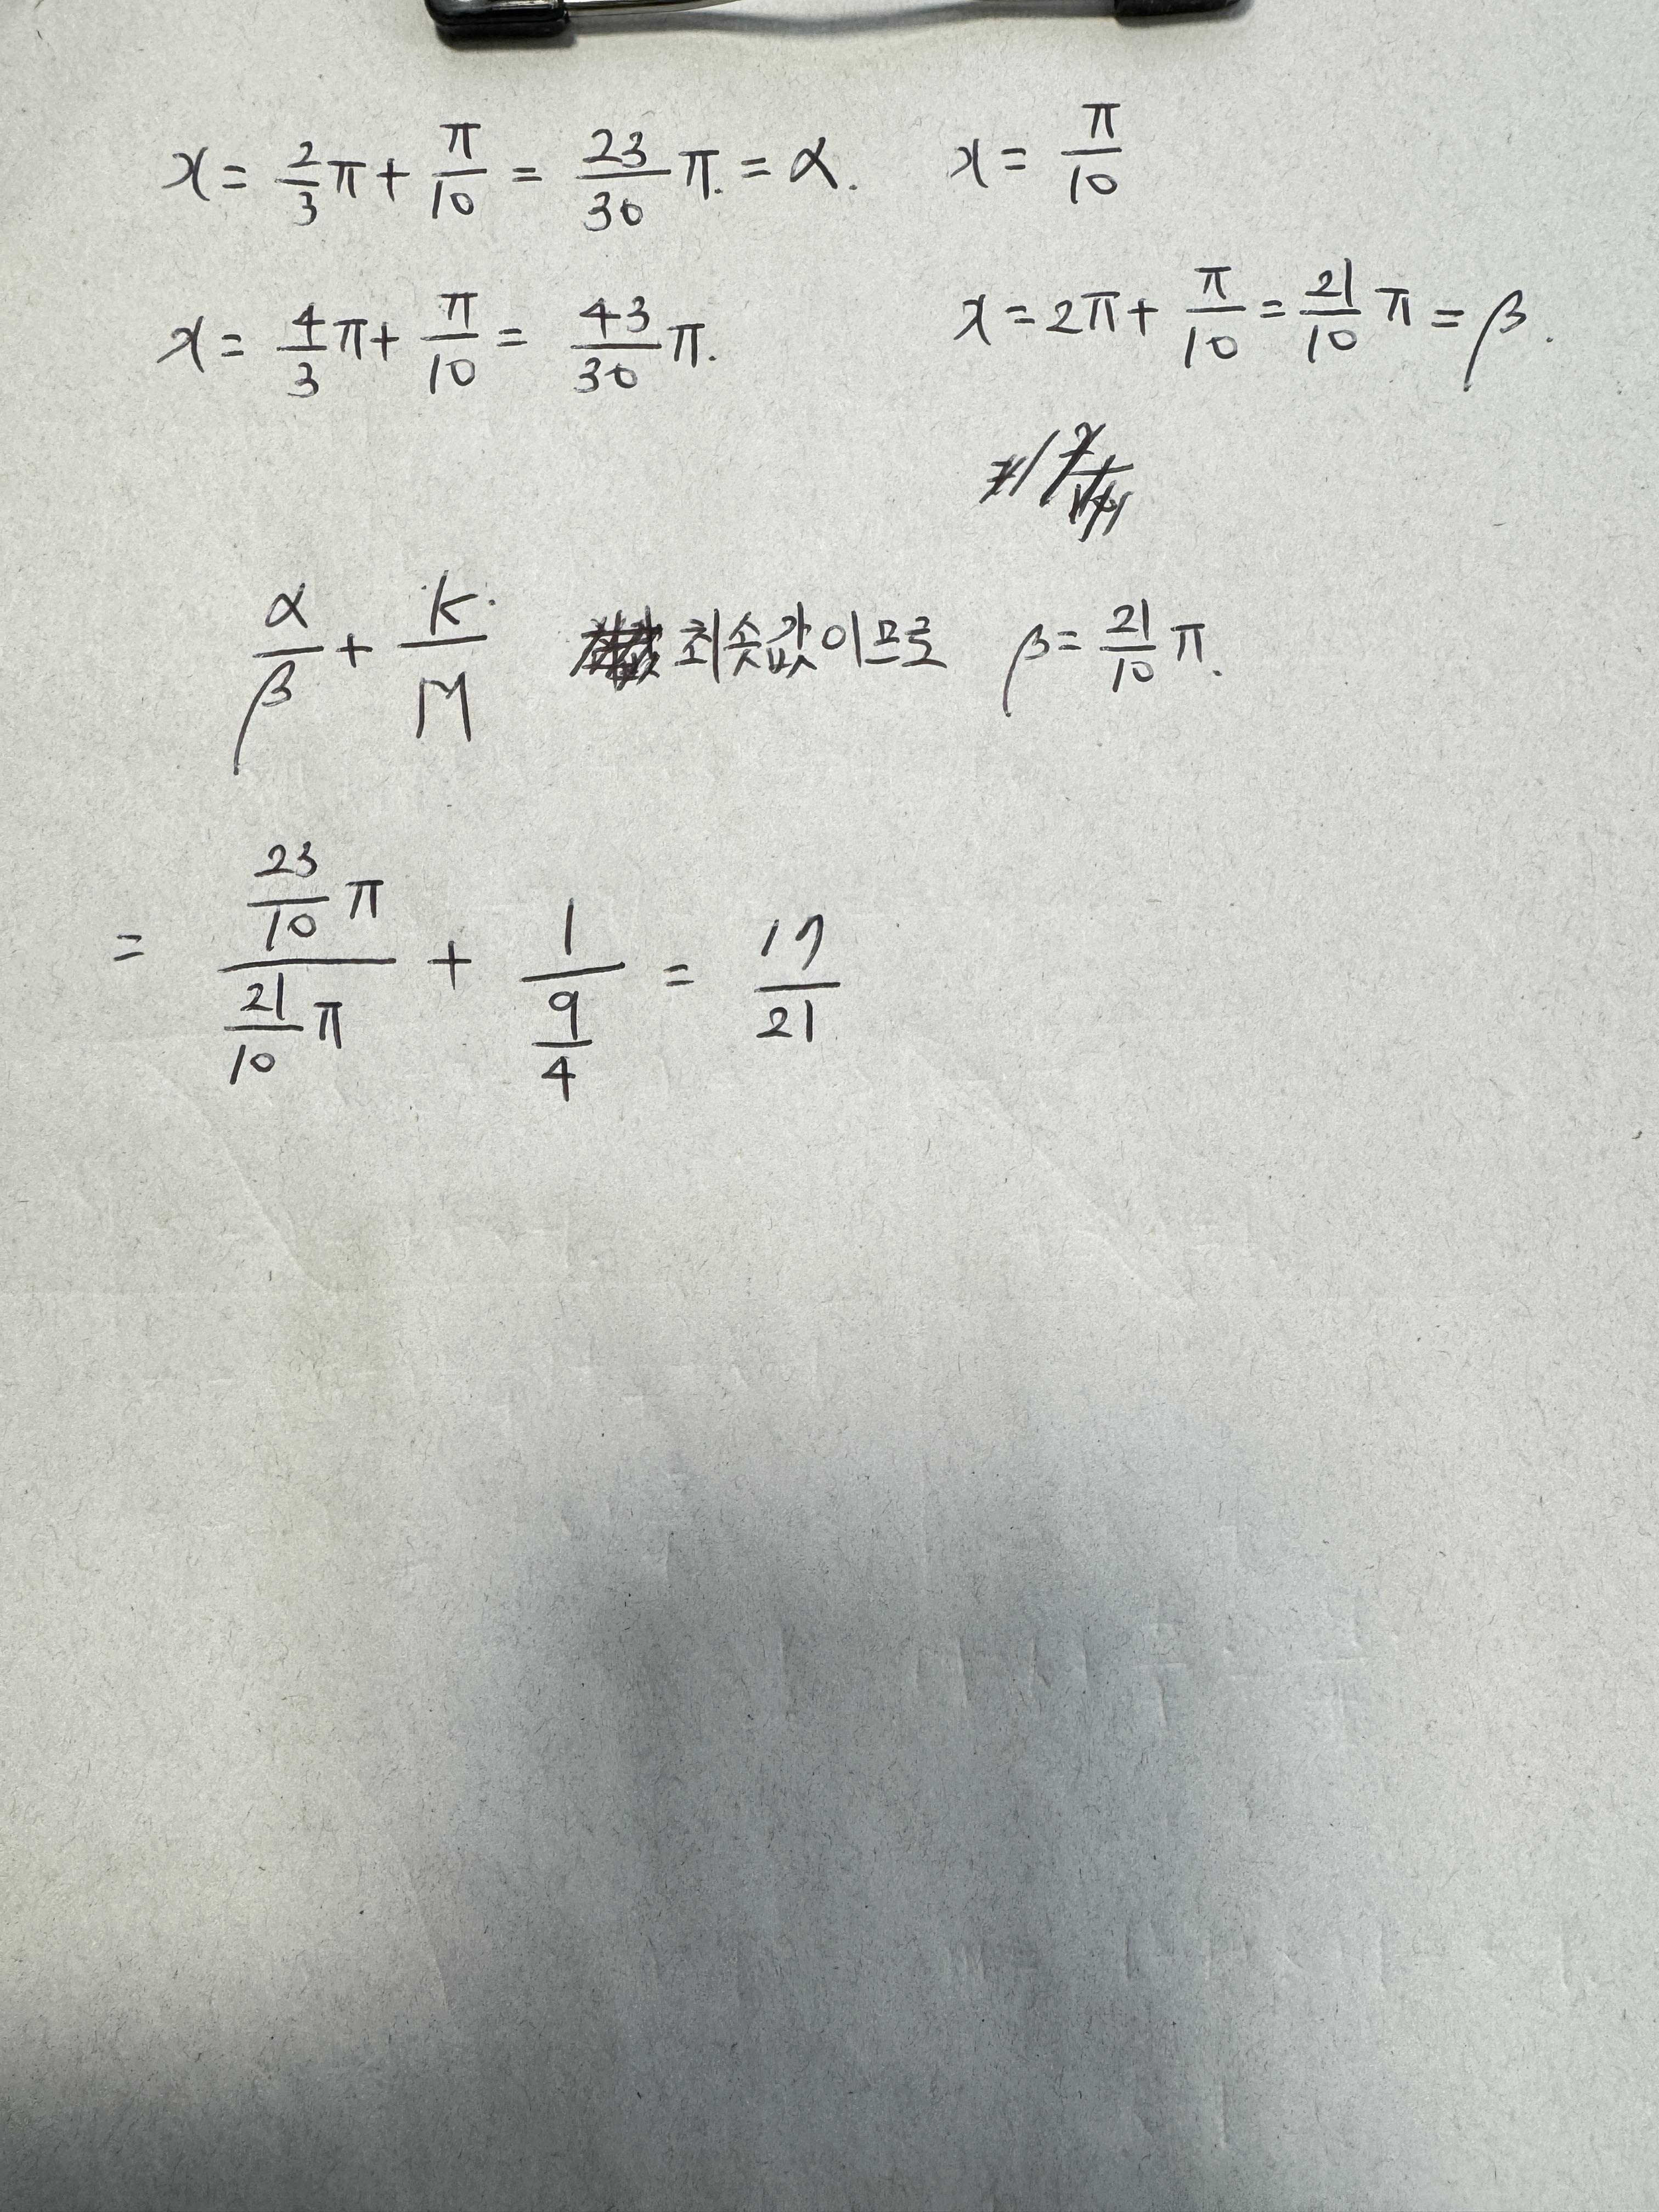 x = 2/3 π + π/10 = 23/30 π. = α. x = π/10
x = 4/3 π + π/10 = 43/30 π. x = 2π + π/10 = 21/10 π = β.
α/β + k/M 최솟값이므로 β = 21/10 π.
= (23/10 π)/(21/10 π) + 1/(9/4) = 17/21